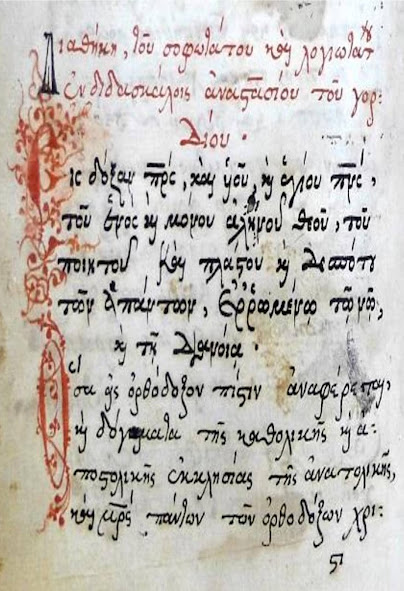 Διαθήκη, τοῦ σοφωτάτου καὶ λογιωτάτου
ἐν διδασκάλοις ἀναστασίου τοῦ γορ:
δίου.
Εἰς δόξαν πρς, καὶ υἱοῦ, κ ἁγίου πνς,
τοῦ ἑνὸς κ μόνου ἀληνοῦ θεοῦ, τοῦ
ποιητοῦ καὶ πλάστου κ δεσπότου
τῶν ἁπάντων, ἐρρωμένω τῶ νῶ,
κ τῆ διανοία.
Ὅσα εἰς ὀρθόδοξον πίστιν ἀναφέρεται,
κ δόγματα τῆς καθολικῆς κ ἀ:
ποστολικῆς ἐκκλησίας τῆς ἀνατολικῆς,
καὶ πάντων τῶν ὀρθοδόξων χρι:
ς